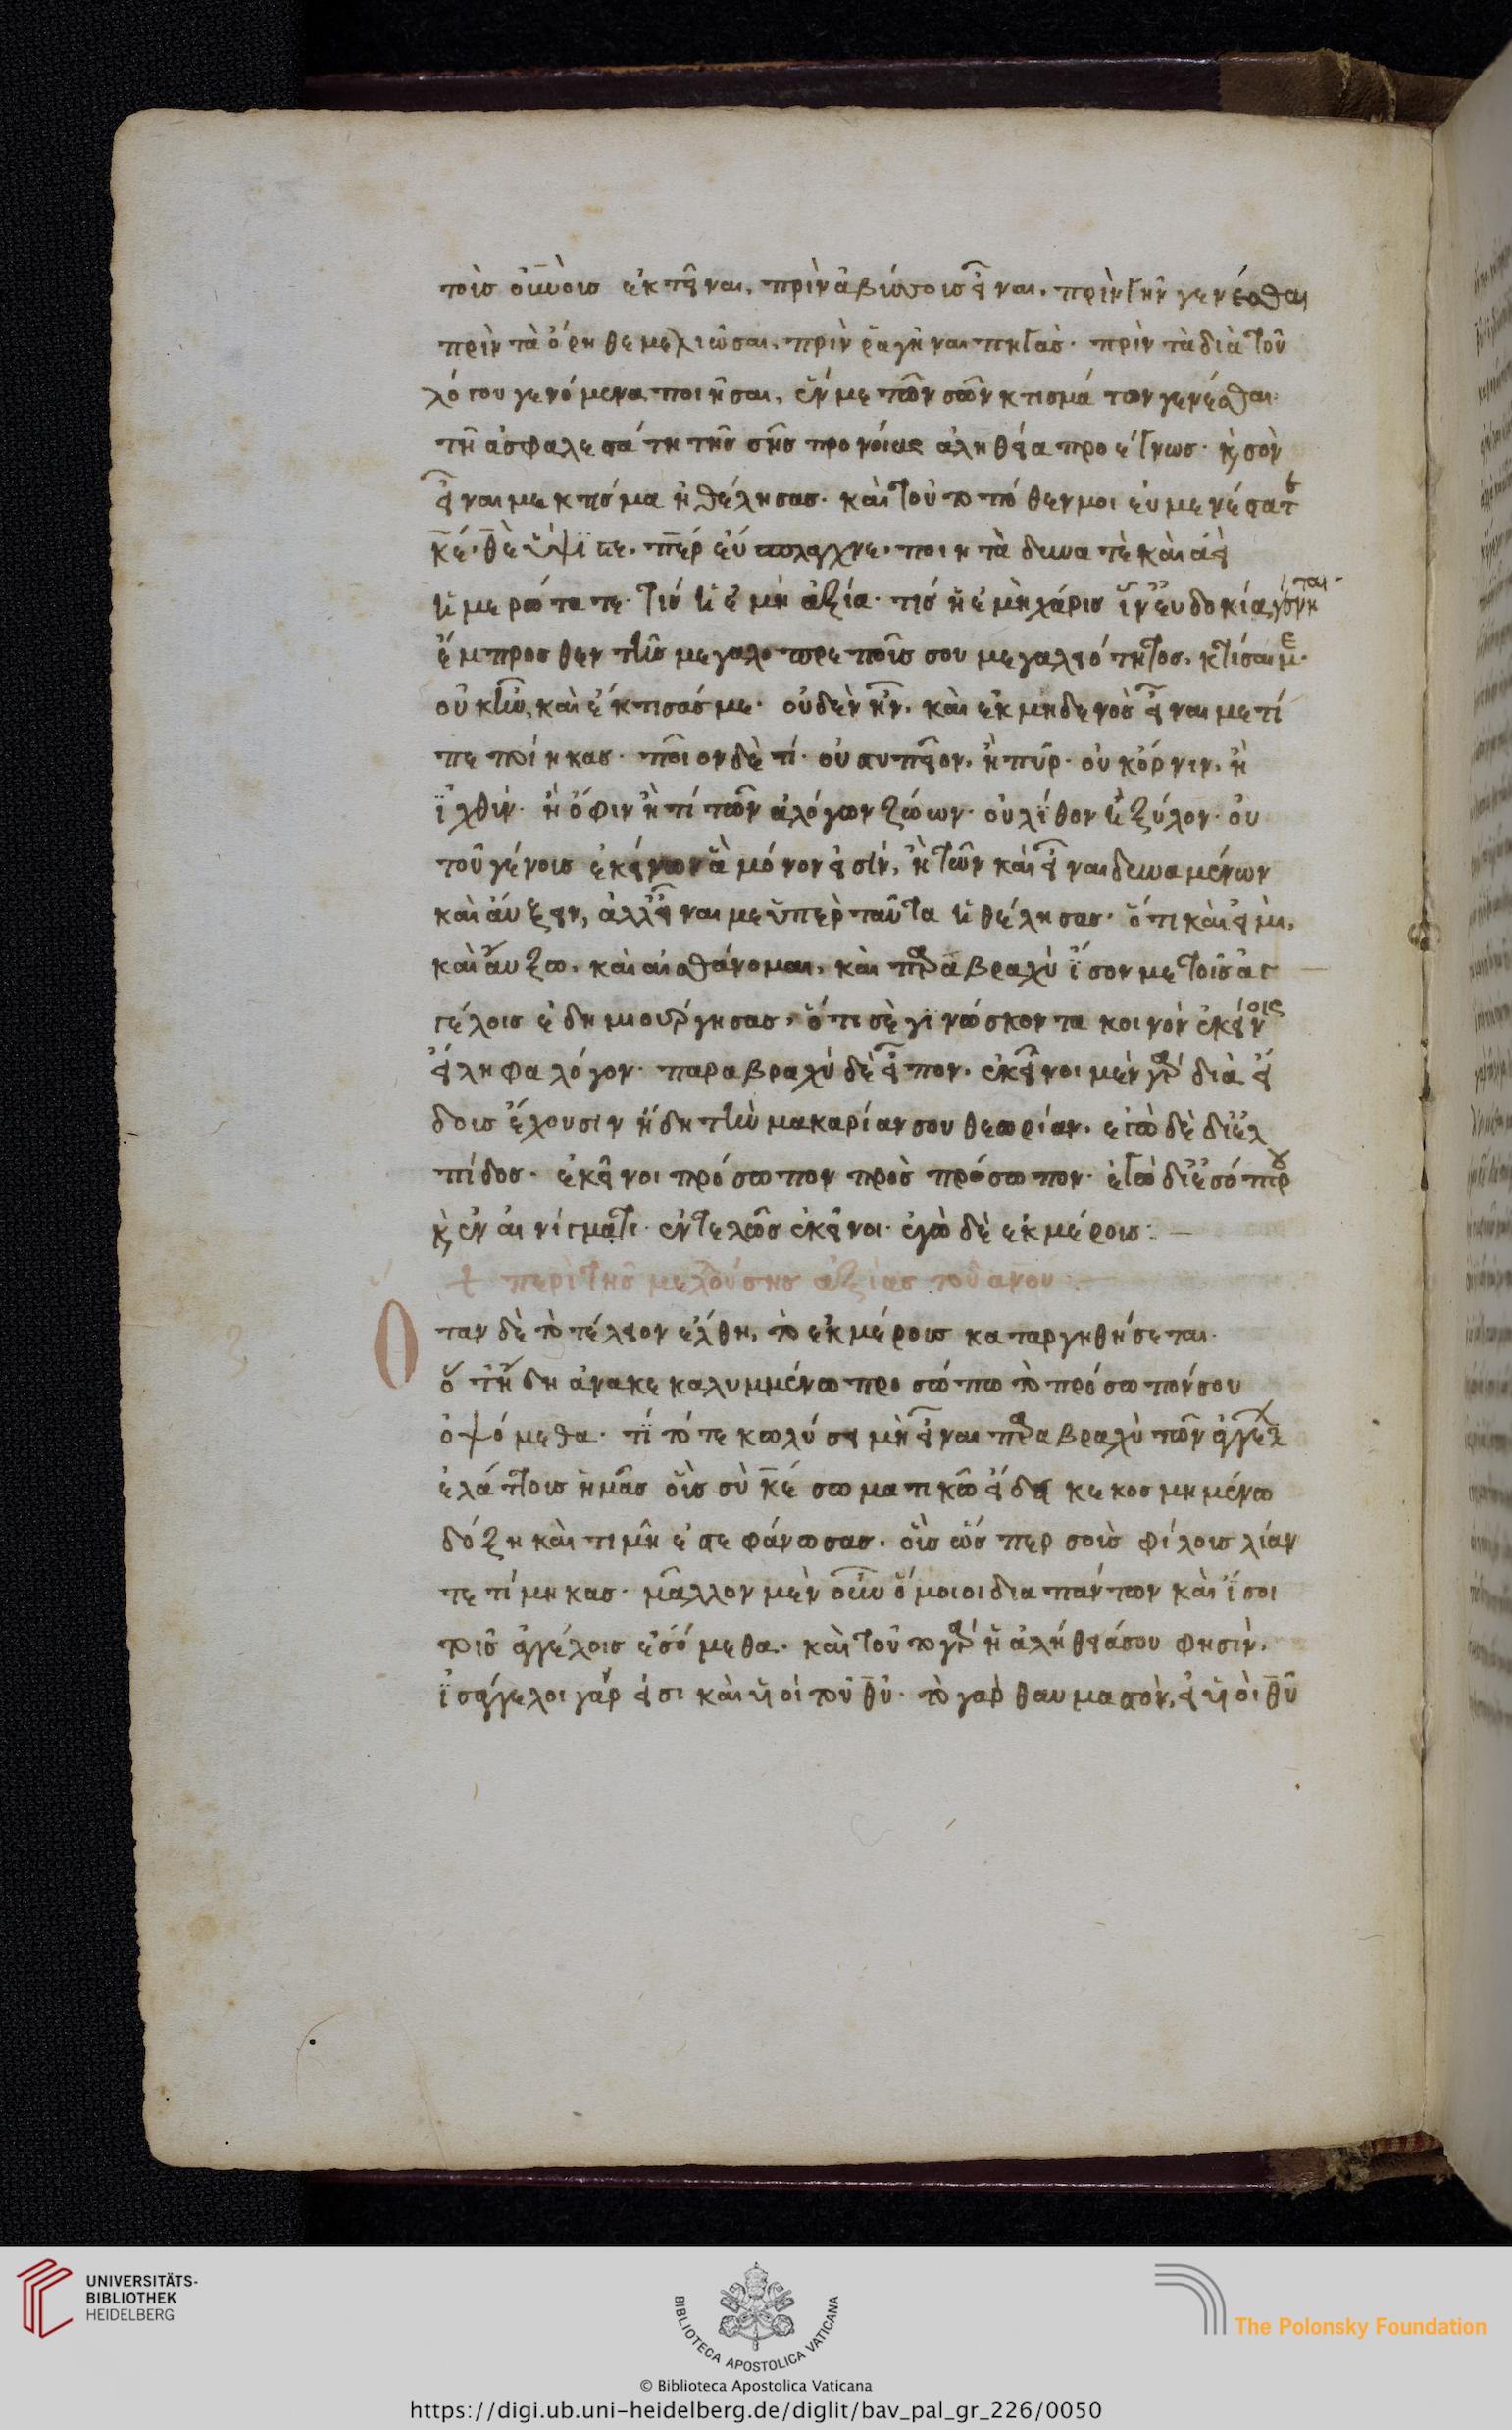 τοὺς οὐνοὺς ἐκταθῆναι. πρὶν ἀβύσσους εἶναι. πρὶν γῆν γενέσθαι
πρὶν τὰ ὄρη θεμελιῶσαι. πρὶν ῥαγῆναι πηγάς. πρὶν τὰ διὰ τοῦ
λόγου γενόμενα ποιῆσαι, ἕν με τῶν σῶν κτισμάτων γενέσθαι.
τῆ ἀσφαλεστάτη τῆς σῆς προνοίας ἀληθεία προέγνως. κ σὸν
εἶναι με κτίσμα ἠθέλησας. καὶ τοῦτο πόθεν μοι εὐμενέστατ
κε. θὲ ὕψιστε. περ εὔσπλαγχνε. ποιητὰ δυνατὲ καὶ ἀεὶ
ἡμερώτατε. τίς ἡ ἐμὴ ἀξία. τίς ἡ ἐμὴ χάρις ἵν εὐδοκία γένηται
ἔμπροσθεν τῆς μεγαλοπρεποῦς σου μεγαλειότητος. κτίσαι με.
οὐκ ἦν, καὶ ἔκτισάς με. οὐδὲν ἦν. καὶ ἐκ μηδενὸς εἶναι με τί
πεποίηκας. ποῖον δὲ τί. οὐ στυπεῖον. ἢ πῦρ. οὐκ ὄρνιν, ἢ
ἰχθύν. ἢ ὄφιν ἢ τί τῶν ἀλόγων ζώων. οὐ λίθον ἢ ξύλον. οὐ
τοῦ γένους ἐκείνων ἃ μόνον εἰσίν, ἢ τῶν καὶ εἶναι δυναμένων
καὶ αὔξειν, ἀλλ εἶναι με ὑπὲρ ταῦτα ἠθέλησας. ὅτι καὶ εἰμὶ,
καὶ αὔξω. καὶ αἰσθάνομαι. καὶ πρα βραχὺ ἴσον με τοῖς ἀγ
γέλοις ἐδημιούργησας. ὅτι σὲ γινώσκοντα κοινὸν ἐκείνοις
εἴληφα λόγον. παραβραχὺ δὲ εἶπον. ἐκεῖνοι μὲν γρ διὰ εἴ
δους ἔχουσιν ἤδη τὴν μακαρίαν σου θεωρίαν. ἐγὼ δὲ δι ἐλ
πίδος. ἐκεῖνοι πρόσωπον πρὸς πρόσωπον. ἐγὼ δι ἐσόπτρου
κ ἐν αἰνίγματι. ἐντελῶς ἐκεῖνοι. ἐγὼ δὲ ἐκ μέρους:
+ περὶ τῆς μελλούσης ἀξίας τοῦ ανου:
Οταν δὲ τὸ τέλειον ἔλθη, τὸ ἐκ μέρους καταργηθήσεται.
ὅτ ἤδη ἀνακεκαλυμμένω προσώπω τὸ πρόσωπόν σου
ὀψόμεθα. τί τότε κωλύσει μὴ εἶναι πρα βραχὺ τῶν ἀγγέλ
ἐλάττους ἡμᾶς οὓς σὺ κέ σωματικῶ εἴδει κεκοσμημένω
δόξη καὶ τιμῆ ἐστεφάνωσας. οὓς ὥσπερ σοὺς φίλους λίαν
τετίμηκας. μᾶλλον μὲν οὖν ὅμοιοι δια πάντων καὶ ἴσοι
τοῖς ἀγγέλοις ἐσόμεθα. καὶ τοῦτο γρ ἡ ἀλήθειά σου φησίν.
ἰσάγγελοι γάρ εἰσι καὶ υἱοὶ τοῦ θῦ. τὸ γὰρ θαυμαστὸν, εἰ υἱοὶ θῦ
UNIVERSITÄTS-
BIBLIOTHEK
HEIDELBERG
BIBLIOTECA APOSTOLICA VATICANA
© Biblioteca Apostolica Vaticana
The Polonsky Foundation
https://digi.ub.uni-heidelberg.de/diglit/bav_pal_gr_226/0050